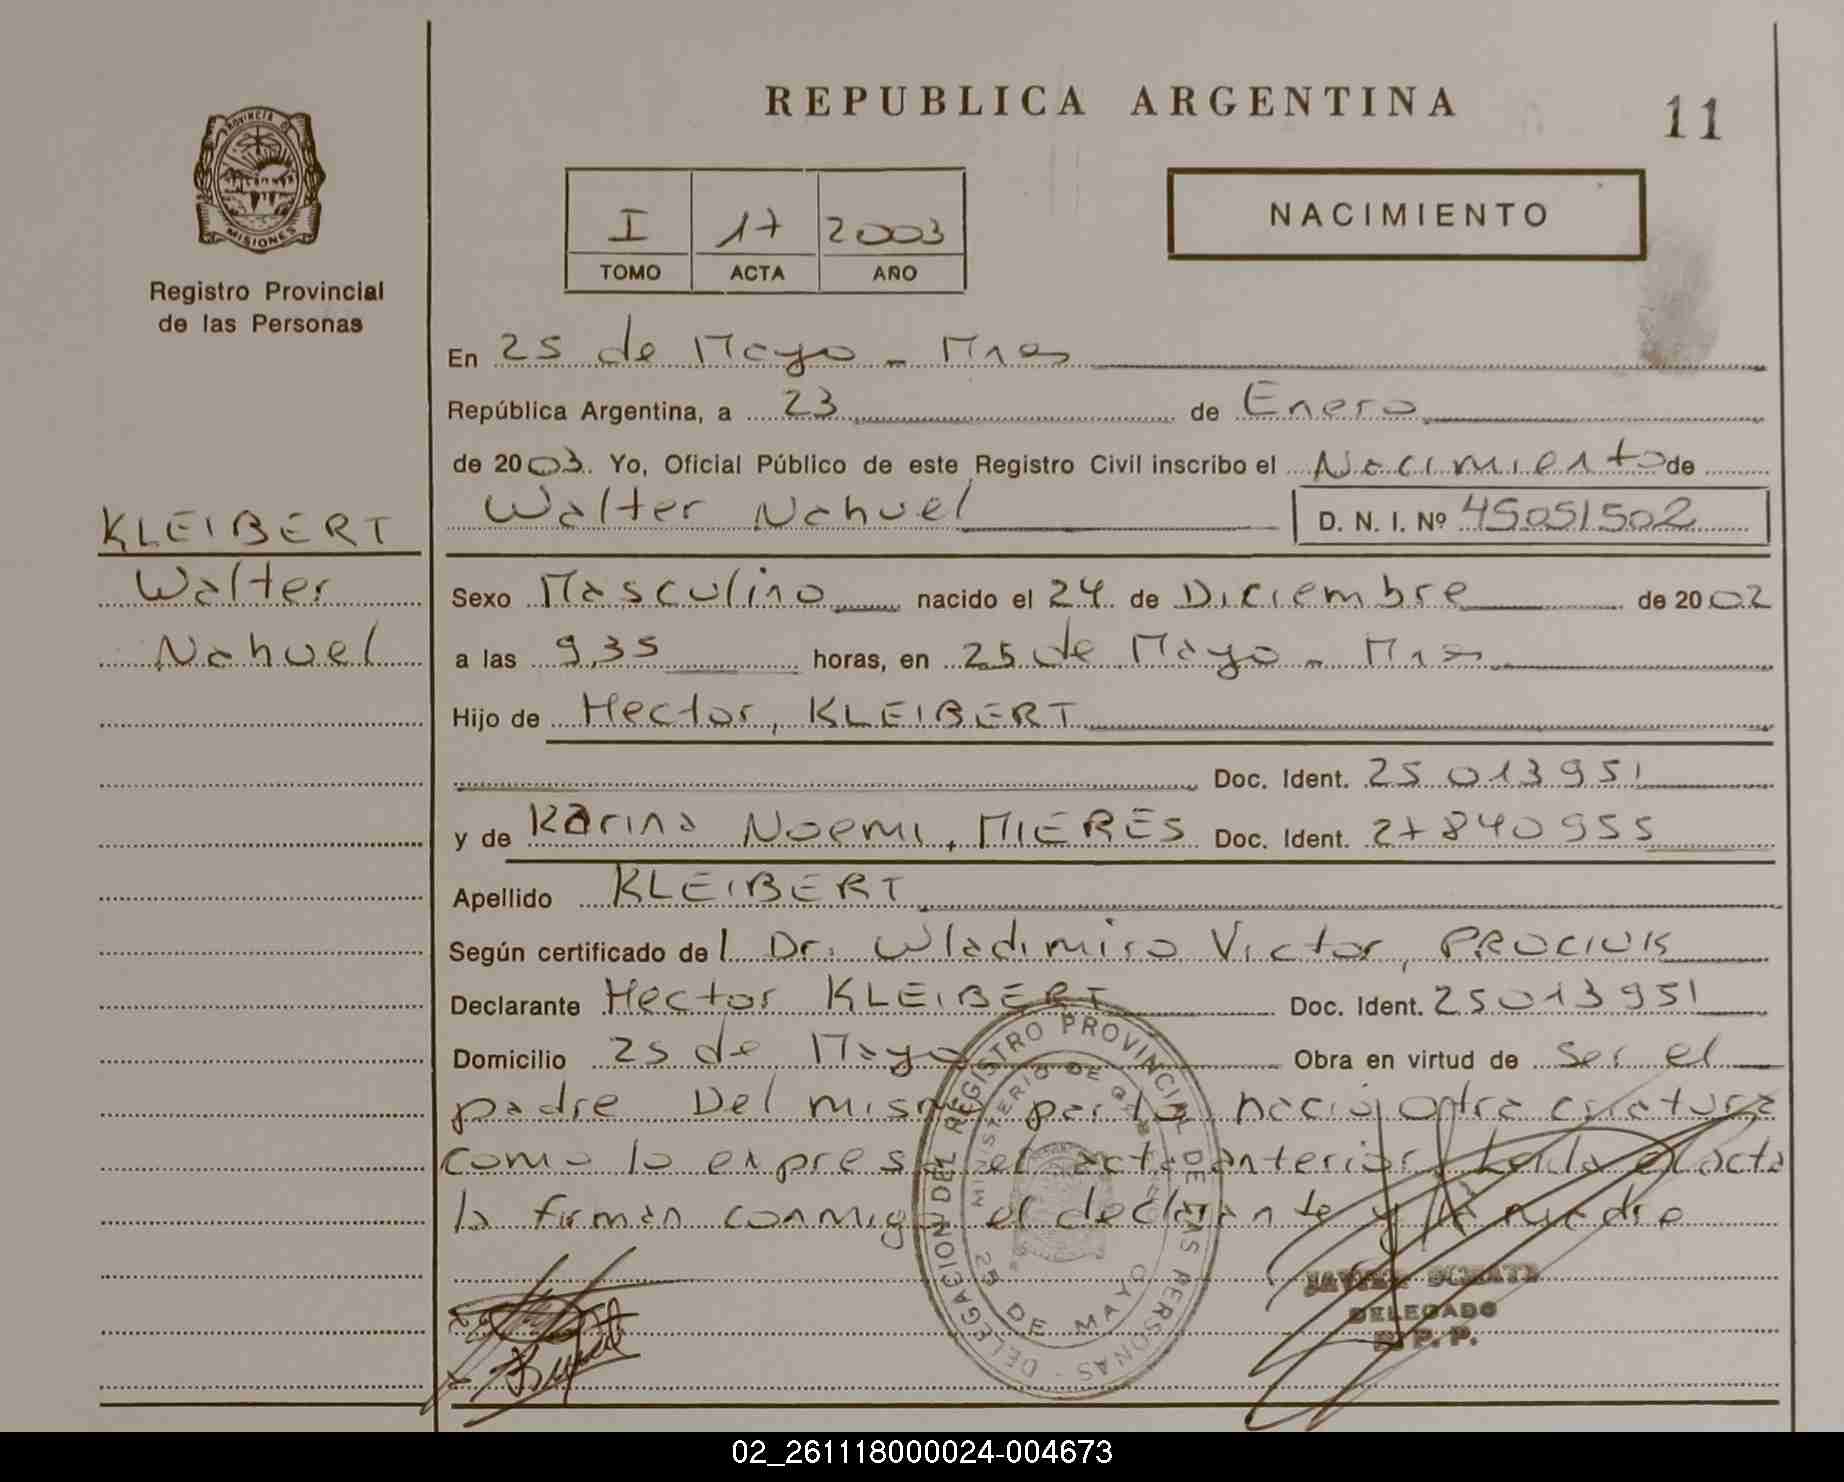 REPUBLICA ARGENTINA
11
PROVINCIA DE
MISIONES
Registro Provincial
de las Personas
I 17 2003
TOMO ACTA AÑO
NACIMIENTO
En 25 de Mayo - Mnes
República Argentina, a 23 de Enero
de 2003. Yo, Oficial Público de este Registro Civil inscribo el Nacimiento de
Walter Nahuel D. N. I. Nº 45051502
KLEIBERT
Walter
Nahuel
Sexo Masculino nacido el 24 de Diciembre de 2002
a las 9,35 horas, en 25 de Mayo - Mnes
Hijo de Hector, KLEIBERT
Doc. Ident. 25013951
y de Karina Noemi, MIERES Doc. Ident. 27840955
Apellido KLEIBERT
Según certificado del Dr. Wladimiro Victor, PROCIUK
Declarante Hector KLEIBERT Doc. Ident. 25013951
Domicilio 25 de Mayo Obra en virtud de ser el
padre Del mismo parto nacio otra criatura
como lo expresa el acta anterior. Leida el acta
la firman conmigo el declarante y la madre
DELEGACION DEL REGISTRO PROVINCIAL DE LAS PERSONAS -
MINISTERIO DE
25 DE MAYO
JAVIER
DELEGADO
R. P. P.
02_261118000024-004673